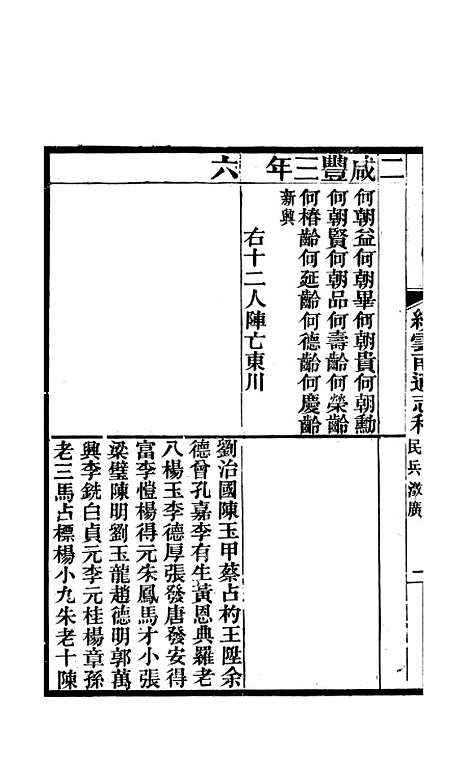 二 咸豐三年 六
何朝益何朝畢何朝貴何朝勳
何朝賢何朝品何壽齡何榮齡
何椿齡何延齡何德齡何慶齡
新興
右十二人陣亡東川
劉治國陳玉甲蔡占杓王陞余
德曾孔嘉李有生黃恩典羅老
八楊玉李德厚張發唐發安得
富李愷楊得元朱鳳馬才小張
梁璧陳明劉玉龍趙德明郭萬
興李銑白貞元李元桂楊章孫
老三馬占標楊小九朱老十陳
雲南通志
民兵徵廣
一